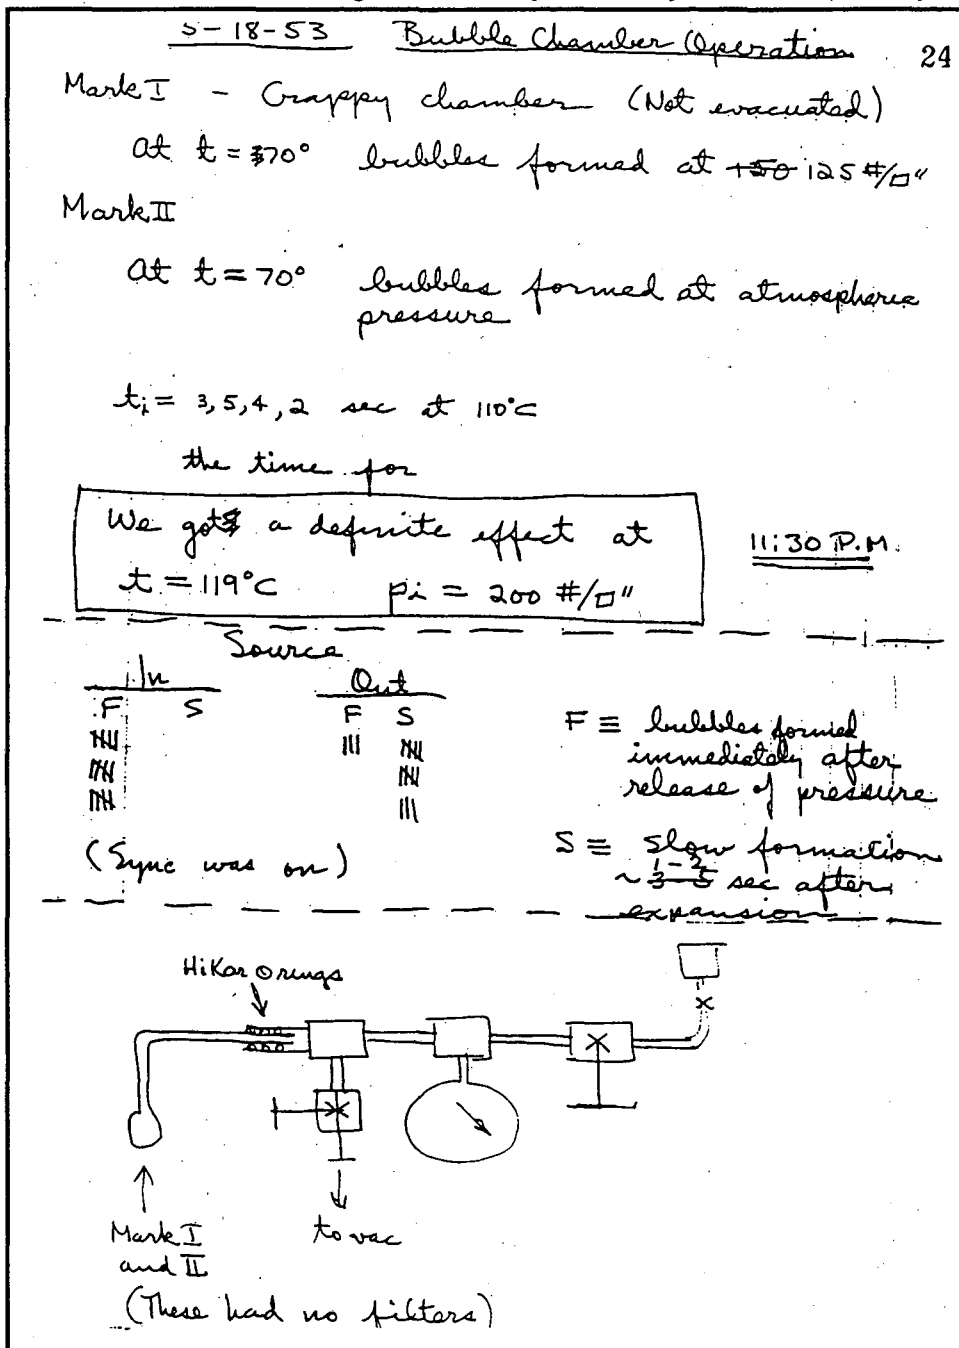 5-18-53 Bubble Chamber Operation 24
Mark I - Crappy chamber (Not evacuated)
At t = 70° bubbles formed at 125 #/□"
Mark II
At t = 70° bubbles formed at atmospheric
pressure
ti = 3, 5, 4, 2 sec at 110°C
the time for
We got a definite effect at
t = 119°C pi = 200 #/□"
11:30 P.M.
Source
In Out
F S F S
F ≡ bubbles formed
immediately after
release of pressure
(Sync was on)
S ≡ slow formation
~ 1-2 sec after
expansion
HiKar O rings
Mark I
and II
to vac
(These had no filters)